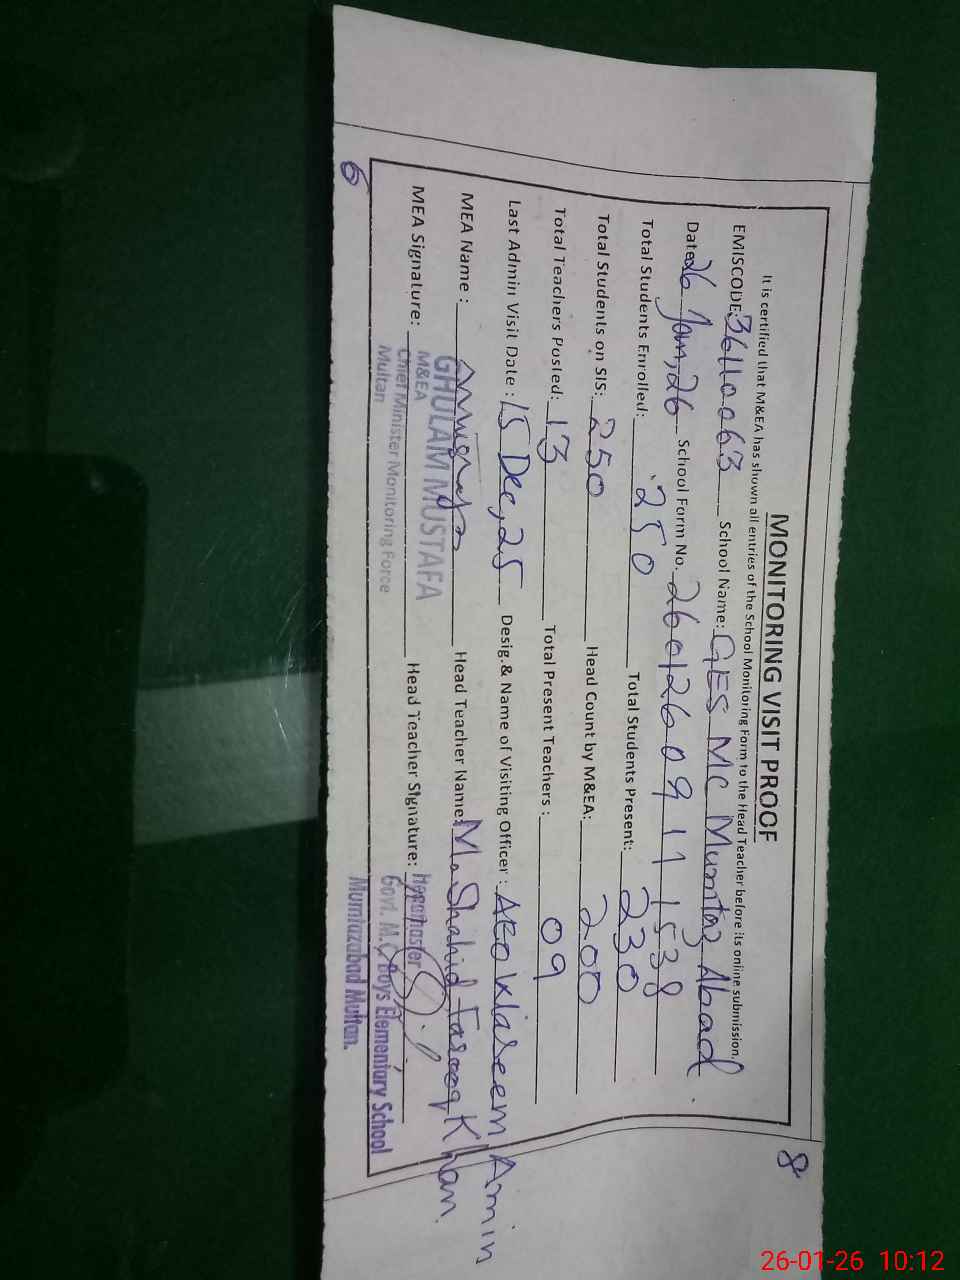 8
MONITORING VISIT PROOF
It is certified that M&EA has shown all entries of the School Monitoring Form to the Head Teacher before its online submission.
EMISCODE: 36110063 School Name: GES MC Mumtaz Abad
Date: 26 Jan, 26 School Form No. 260126091 1 1538
Total Students Enrolled: 250 Total Students Present: 230
Total Students on SIS: 250 Head Count by M&EA: 200
Total Teachers Posted: 13 Total Present Teachers : 09
Last Admin Visit Date : 15 Dec, 25 Desig.& Name of Visiting Officer : AEO Waseem Amin
MEA Name : Head Teacher Name: M. Shahid Farooq Khan.
MEA Signature: Head Teacher Signature:
GHULAM MUSTAFA
M&EA
Chief Minister Monitoring Force
Multan
Headmaster
Govt. M.C Boys Elementary School
Mumtazabad Multan.
6
26-01-26 10:12